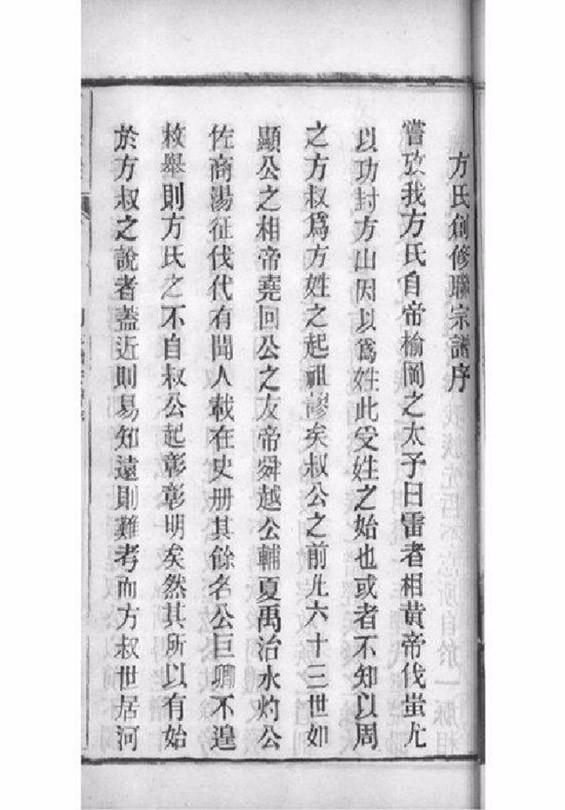 方氏創修聯宗譜序
嘗攷我方氏自帝榆岡之太子曰雷者相黃帝伐蚩尤
以功封方山因以爲姓此受姓之始也或者不知以周
之方叔爲方姓之起祖謬矣叔公之前凡六十三世如
顯公之相帝堯回公之友帝舜越公輔夏禹治水灼公
佐商湯征伐代有聞人載在史册其餘名公巨卿不遑
枚舉則方氏之不自叔公起彰彰明矣然其所以有始
於方叔之說者蓋近則易知遠則難考而方叔世居河